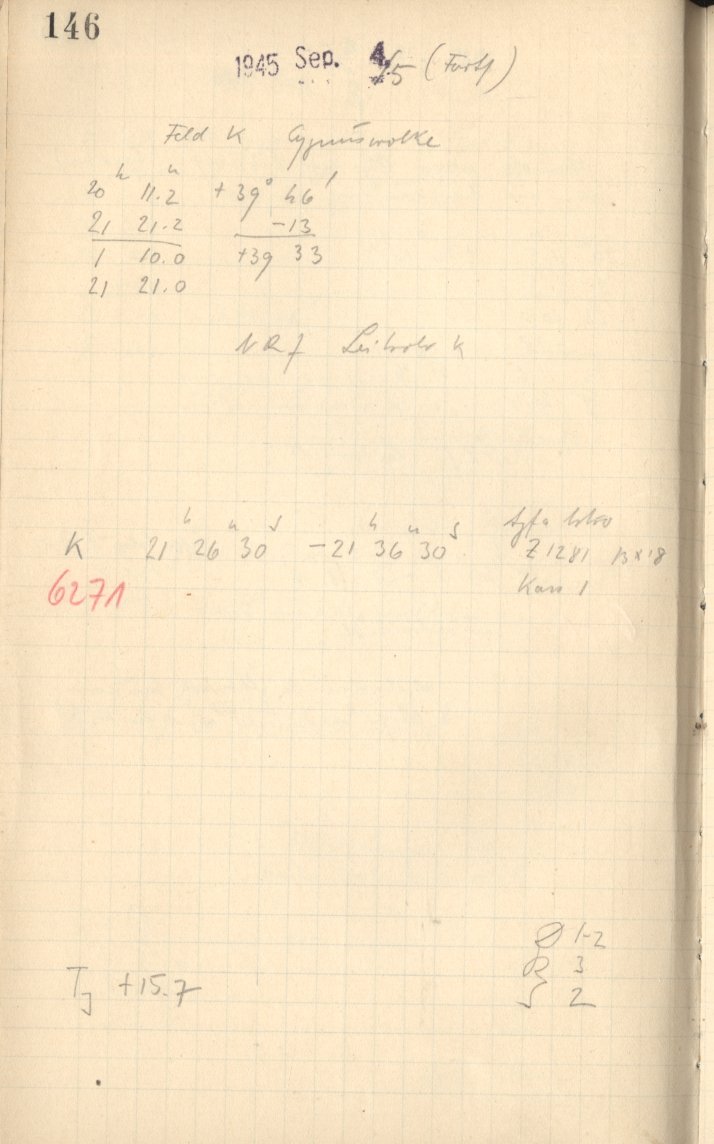 146
1945 Sep. 4./5 (Forts)
Feld K Cygnuswolke
20 h 11.2 m +39° 46'
21 21.2 -13
1 10.0 +39 33
21 21.0
K 21 h 26 m 30 s – 21 h 36 m 30 s
Agfa Isko
Z 1281 13x18
6271
Kass 1
1-2
R 3
T +15.7
S 2